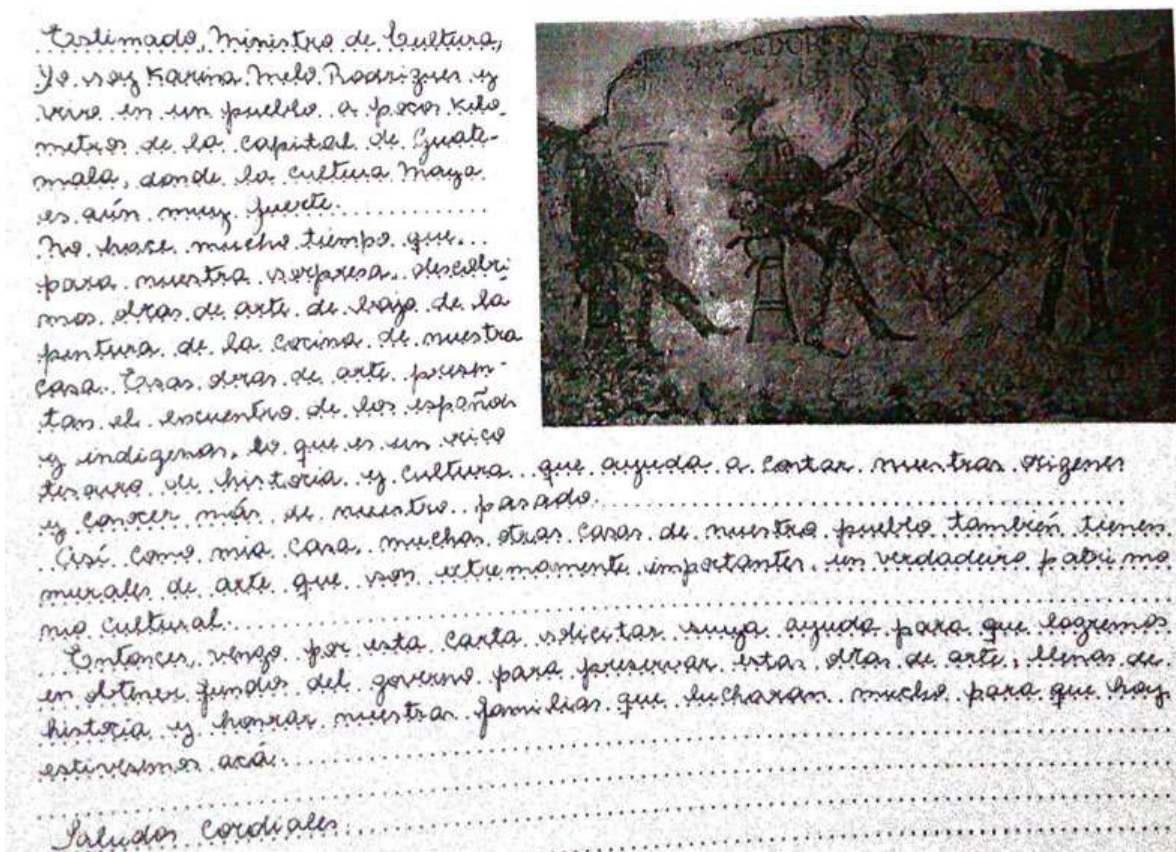 Estimado, Ministro de Cultura,
Yo soy Karina Melo Rodrizues y
vivo en un pueblo a pocos kilo-
metros de la capital de Guate-
mala, donde la cultura Maya
es aún muy fuerte.
No hace mucho tiempo que
para nuestra sorpresa, descubri-
mos obras de arte de bajo de la
pintura de la cocina de nuestra
casa. Esas obras de arte presen-
tas el encuentro de los españois
y indígenas, lo que es un rico
tesauro de história y cultura que ayuda a contar nuestras origenes
y conocer más de nuestro pasado.
Así como mia casa, muchas otras casas de nuestro pueblo también tienen
murales de arte que sos extremamente importantes, un verdadeiro patrimo
nio cultural.
Entonces, vengo por esta carta solicitar suya ayuda para que logremos
en obtener fundos del governo para preservar estas obras de arte, llenas de
história y honrar nuestras familias que lucharan mucho para que hoy
estivesemos acá.
Saludos Cordiales
CEDORES